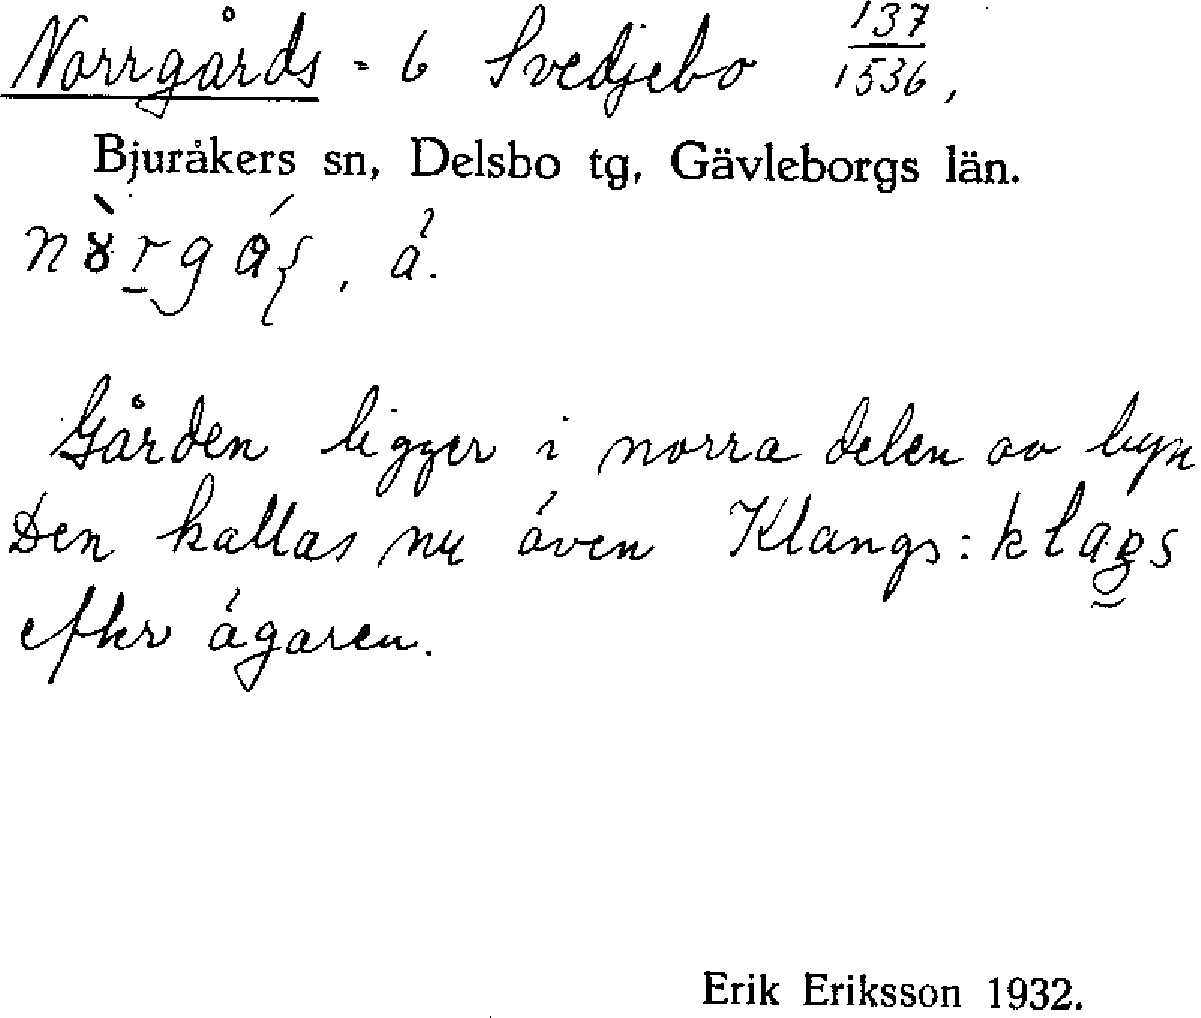 Norrgårds - 6 Svedjebo 137/1536,
Bjuråkers sn, Delsbo tg, Gävleborgs län.
á.
Gården ligger i norra delen av byn
Den kallas nu även Klangs:
efter ägaren.
Erik Eriksson 1932.